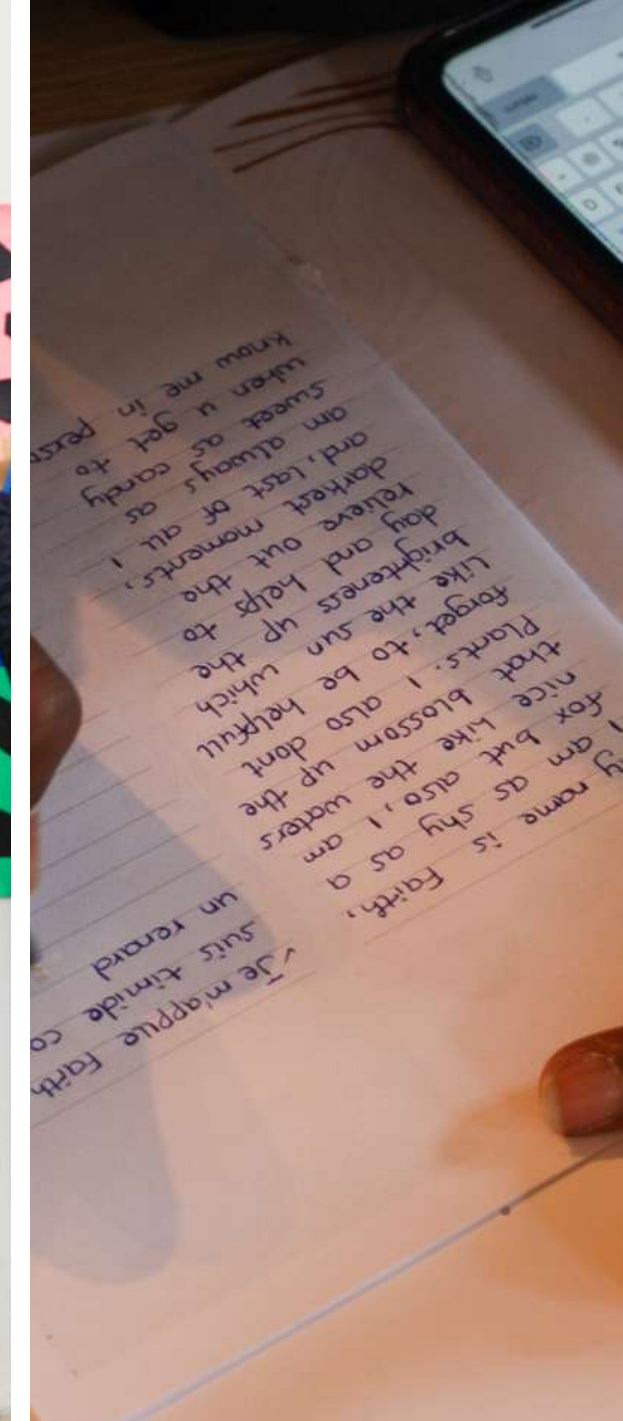 y name is Faith,
I am as shy as a
fox but also, I am
nice like the waters
that blossom up the
Plants. I also dont
forget, to be helpfull
Like the sun which
brighteness up the
day and helps to
relieve out the
darkest moments,
and, last of all I
am always as
sweet as candy
when u get to
know me in perso
Je m'appue Faith
suis timide co
un renard